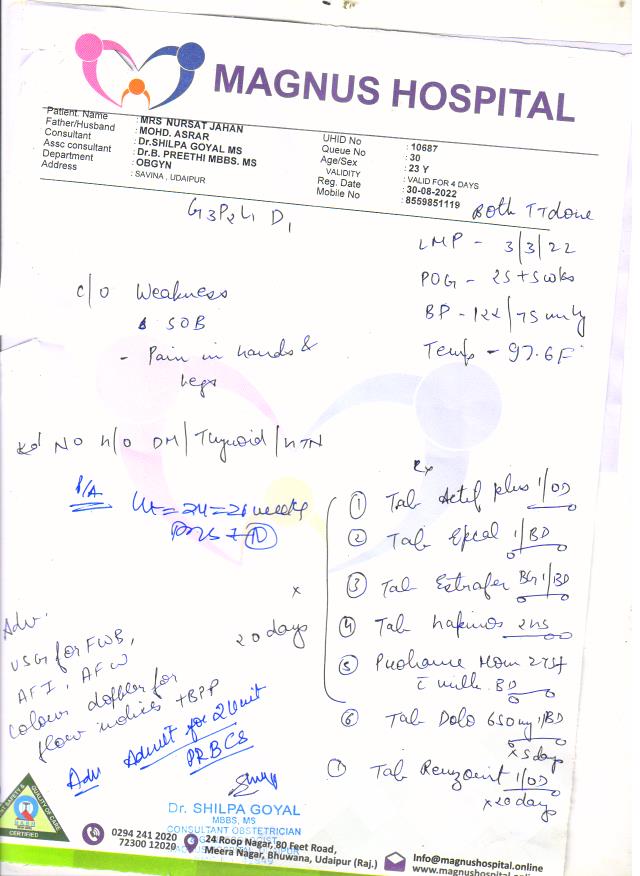 MAGNUS HOSPITAL
Patient. Name : MRS NURSAT JAHAN
Father/Husband : MOHD. ASRAR
Consultant : Dr.SHILPA GOYAL MS
Assc consultant : Dr.B. PREETHI MBBS. MS
Department : OBGYN
Address : SAVINA, UDAIPUR
UHID No : 10687
Queue No : 30
Age/Sex : 23 Y
VALIDITY : VALID FOR 4 DAYS
Reg. Date : 30-08-2022
Mobile No : 8559851119
G3P2L1 D1
Both TT done
LMP - 3/3/22
POG - 25+5 wks
BP - 122/75 mmHg
Temp - 97.6F
c/o Weakness
SOB
- Pain in hands &
legs
NO H/O DM/Thyroid/HTN
P/A
weeks
Rx
① Tab Actif plus 1/OD
② Tab Epcal 1/BD
③ Tab Estrafer 1/BD
④ Tab 2HS
⑤ Mom
c milk BD
⑥ Tab Dolo 650mg 1/BD
x 5 days
Tab 1/OD
x 20 days
x
20 days
Adv.
USG for FWB,
AFI, AFW
colour doppler for
flow indices + BPP
Adv Admit for 2 Unit
PRBCs
Dr. SHILPA GOYAL
MBBS, MS
CONSULTANT OBSTETRICIAN
QUALITY OF CARE
CERTIFIED
0294 241 2020
72300 12020
24 Roop Nagar, 80 Feet Road,
Meera Nagar, Bhuwana, Udaipur (Raj.)
Info@magnushospital.online
www.magnushospital.online